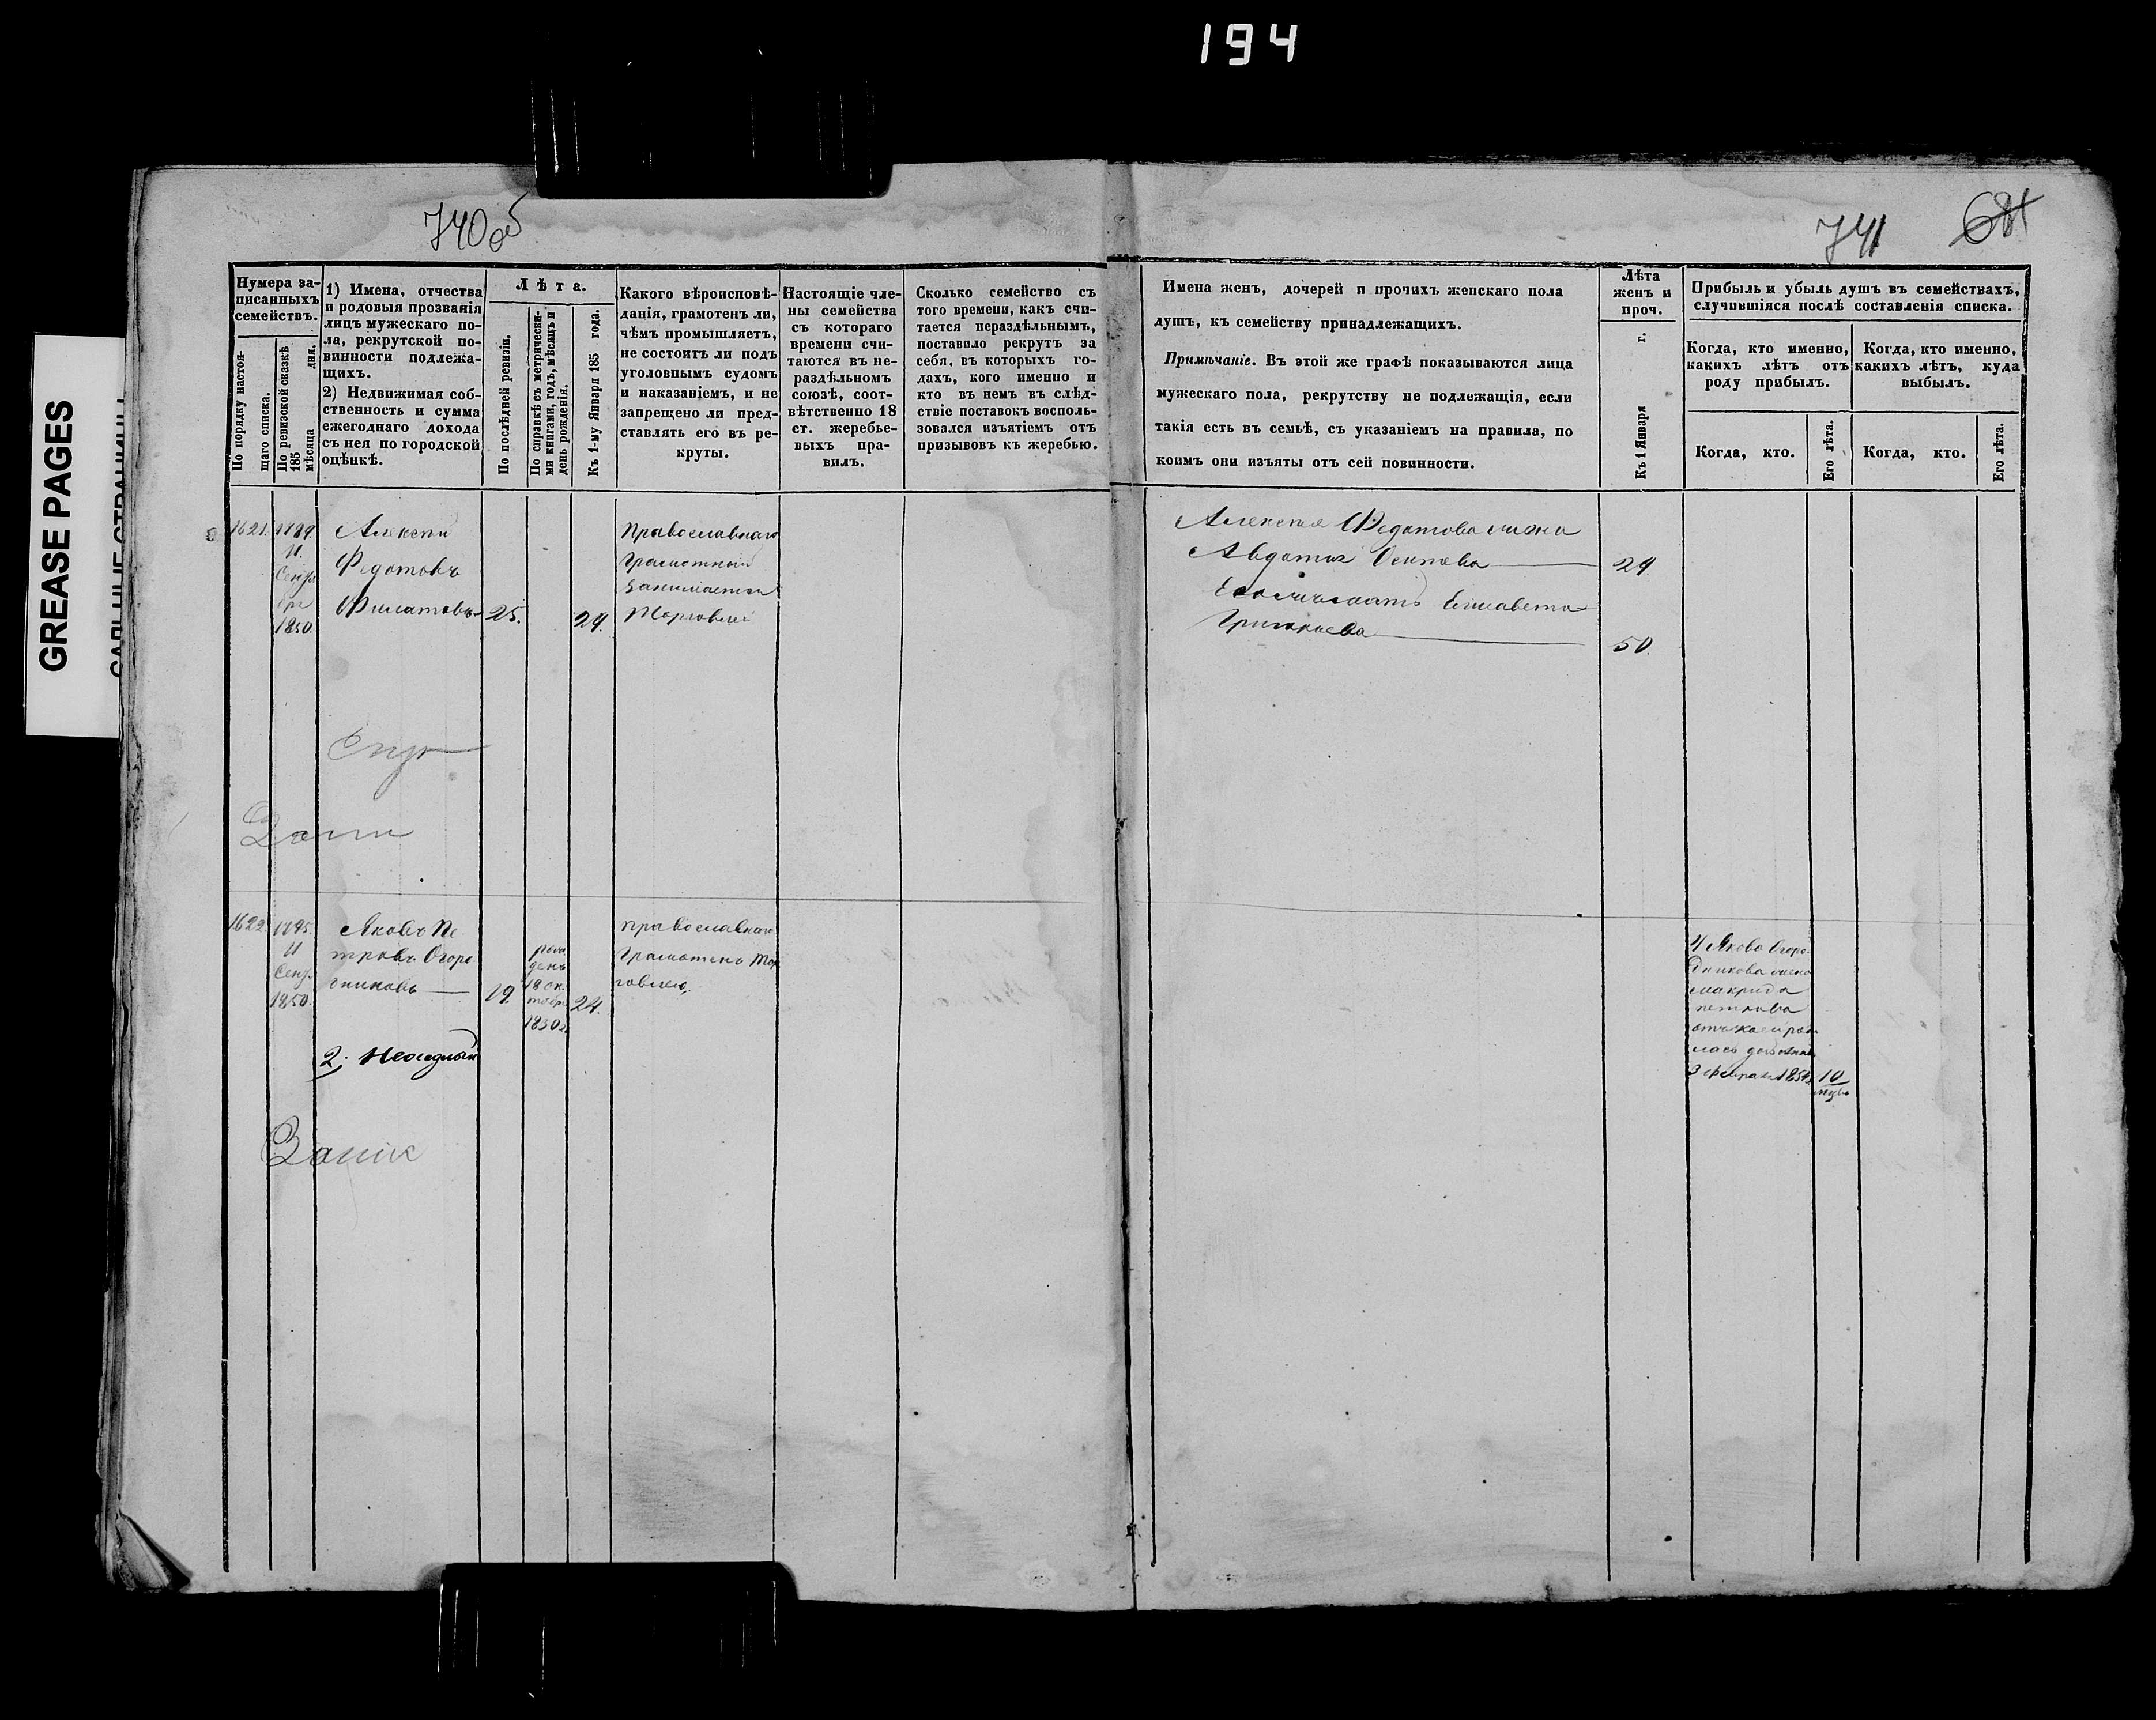 194
GREASE PAGES
740об
741
Нумера за-
писанныхъ
семействъ.
По порядку настоя-
щаго списка.
По ревизской сказкѣ
185 мѣсяца дня.
1) Имена, отчества
и родовыя прозванія
лицъ мужескаго по-
ла, рекрутской по-
винности подлежа-
щихъ.
2) Недвижимая соб-
ственность и сумма
ежегоднаго дохода
съ нея по городской
оцѣнкѣ.
Лѣта.
По послѣдней ревизіи.
По справкѣ съ метрически-
ми книгами, годъ, мѣсяцъ и
день рожденія.
Къ 1-му Января 185 года.
Какого вѣроисповѣ-
данія, грамотенъ ли,
чѣмъ промышляетъ,
не состоитъ ли подъ
уголовнымъ судомъ
и наказаніемъ, и не
запрещено ли пред-
ставлять его въ ре-
круты.
Настоящіе чле-
ны семейства
съ котораго
времени счи-
таются въ не-
раздѣльномъ
союзѣ, соот-
вѣтственно 18
ст. жеребье-
выхъ пра-
вилъ.
Сколько семейство съ
того времени, какъ счи-
тается нераздѣльнымъ,
поставило рекрутъ за
себя, въ которыхъ го-
дахъ, кого именно и
кто въ немъ въ слѣд-
ствіе поставокъ восполь-
зовался изъятіемъ отъ
призывовъ къ жеребью.
Имена женъ, дочерей и прочихъ женскаго пола
душъ, къ семейству принадлежащихъ.
Примѣчаніе. Въ этой же графѣ показываются лица
мужескаго пола, рекрутству не подлежащія, если
такія есть въ семьѣ, съ указаніемъ на правила, по
коимъ они изъяты отъ сей повинности.
Лѣта
женъ и
проч.
Къ 1 Января г.
Прибыль и убыль душъ въ семействахъ,
случившіяся послѣ составленія списка.
Когда, кто именно,
какихъ лѣтъ отъ
роду прибылъ.
Когда, кто именно,
какихъ лѣтъ, куда
выбылъ.
Когда, кто.
Его лѣта.
Когда, кто.
Его лѣта.
1621.
11.
Сентя
бря
1850
Алексѣй
Федотовъ
Филатовъ
25.
29.
Православнаго
Грамотный
Занимается
Торговлей
Алексѣя Федотова жена
Авдотья Осипова
29
Его мать Елисавета
50
1622.
11
Сент.
1850.
Яковъ Пе
тровъ Огоро
дниковъ
19.
рож
денъ
18 ок
тября
1830г.
24.
православнаго
Грамотенъ Тор
говлею,
2. Неседный
У Якова Огоро
дникова жена
Макрида
петрова
3 февраля
10